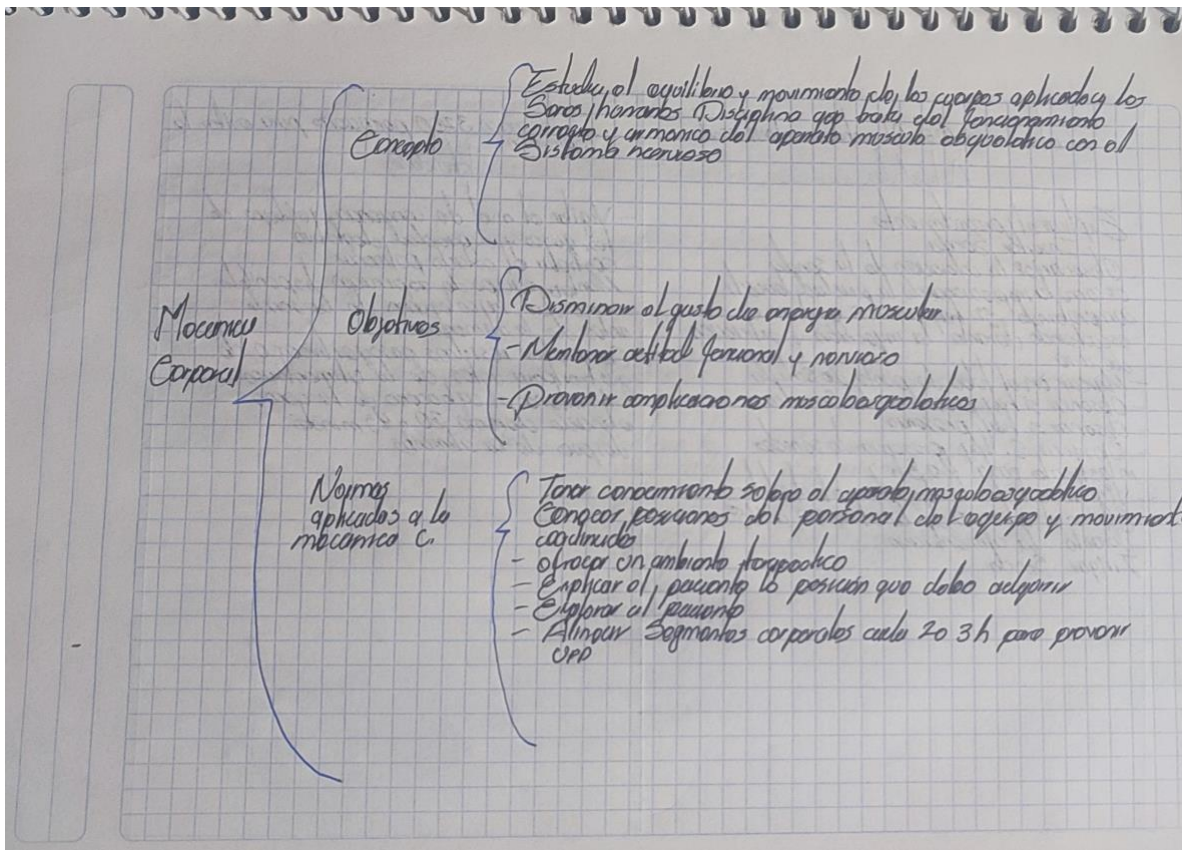 Concepto
Estudia el equilibrio y movimiento de los cuerpos aplicado a los
Seres humanos Disciplina que trata del funcionamiento
correcto y armonico del aparato musculo esqueletico con el
Sistema nervioso
Mecanica
Corporal
Objetivos
Disminuir el gasto de energia muscular
- Mantener actitud funcional y nervioso
- Prevenir complicaciones musculoesqueleticas
Normas
aplicadas a la
mecanica C.
Tener conocimiento sobre el aparato musculoesqueletico
Conocer posiciones del personal del equipo y movimient
coordinados
- ofrecer un ambiente terapeutico
- Explicar al paciente la posición que debe adquirir
- Explorar al paciente
- Alinear Segmentos corporales cada 2 o 3 h para prevenir
UPP